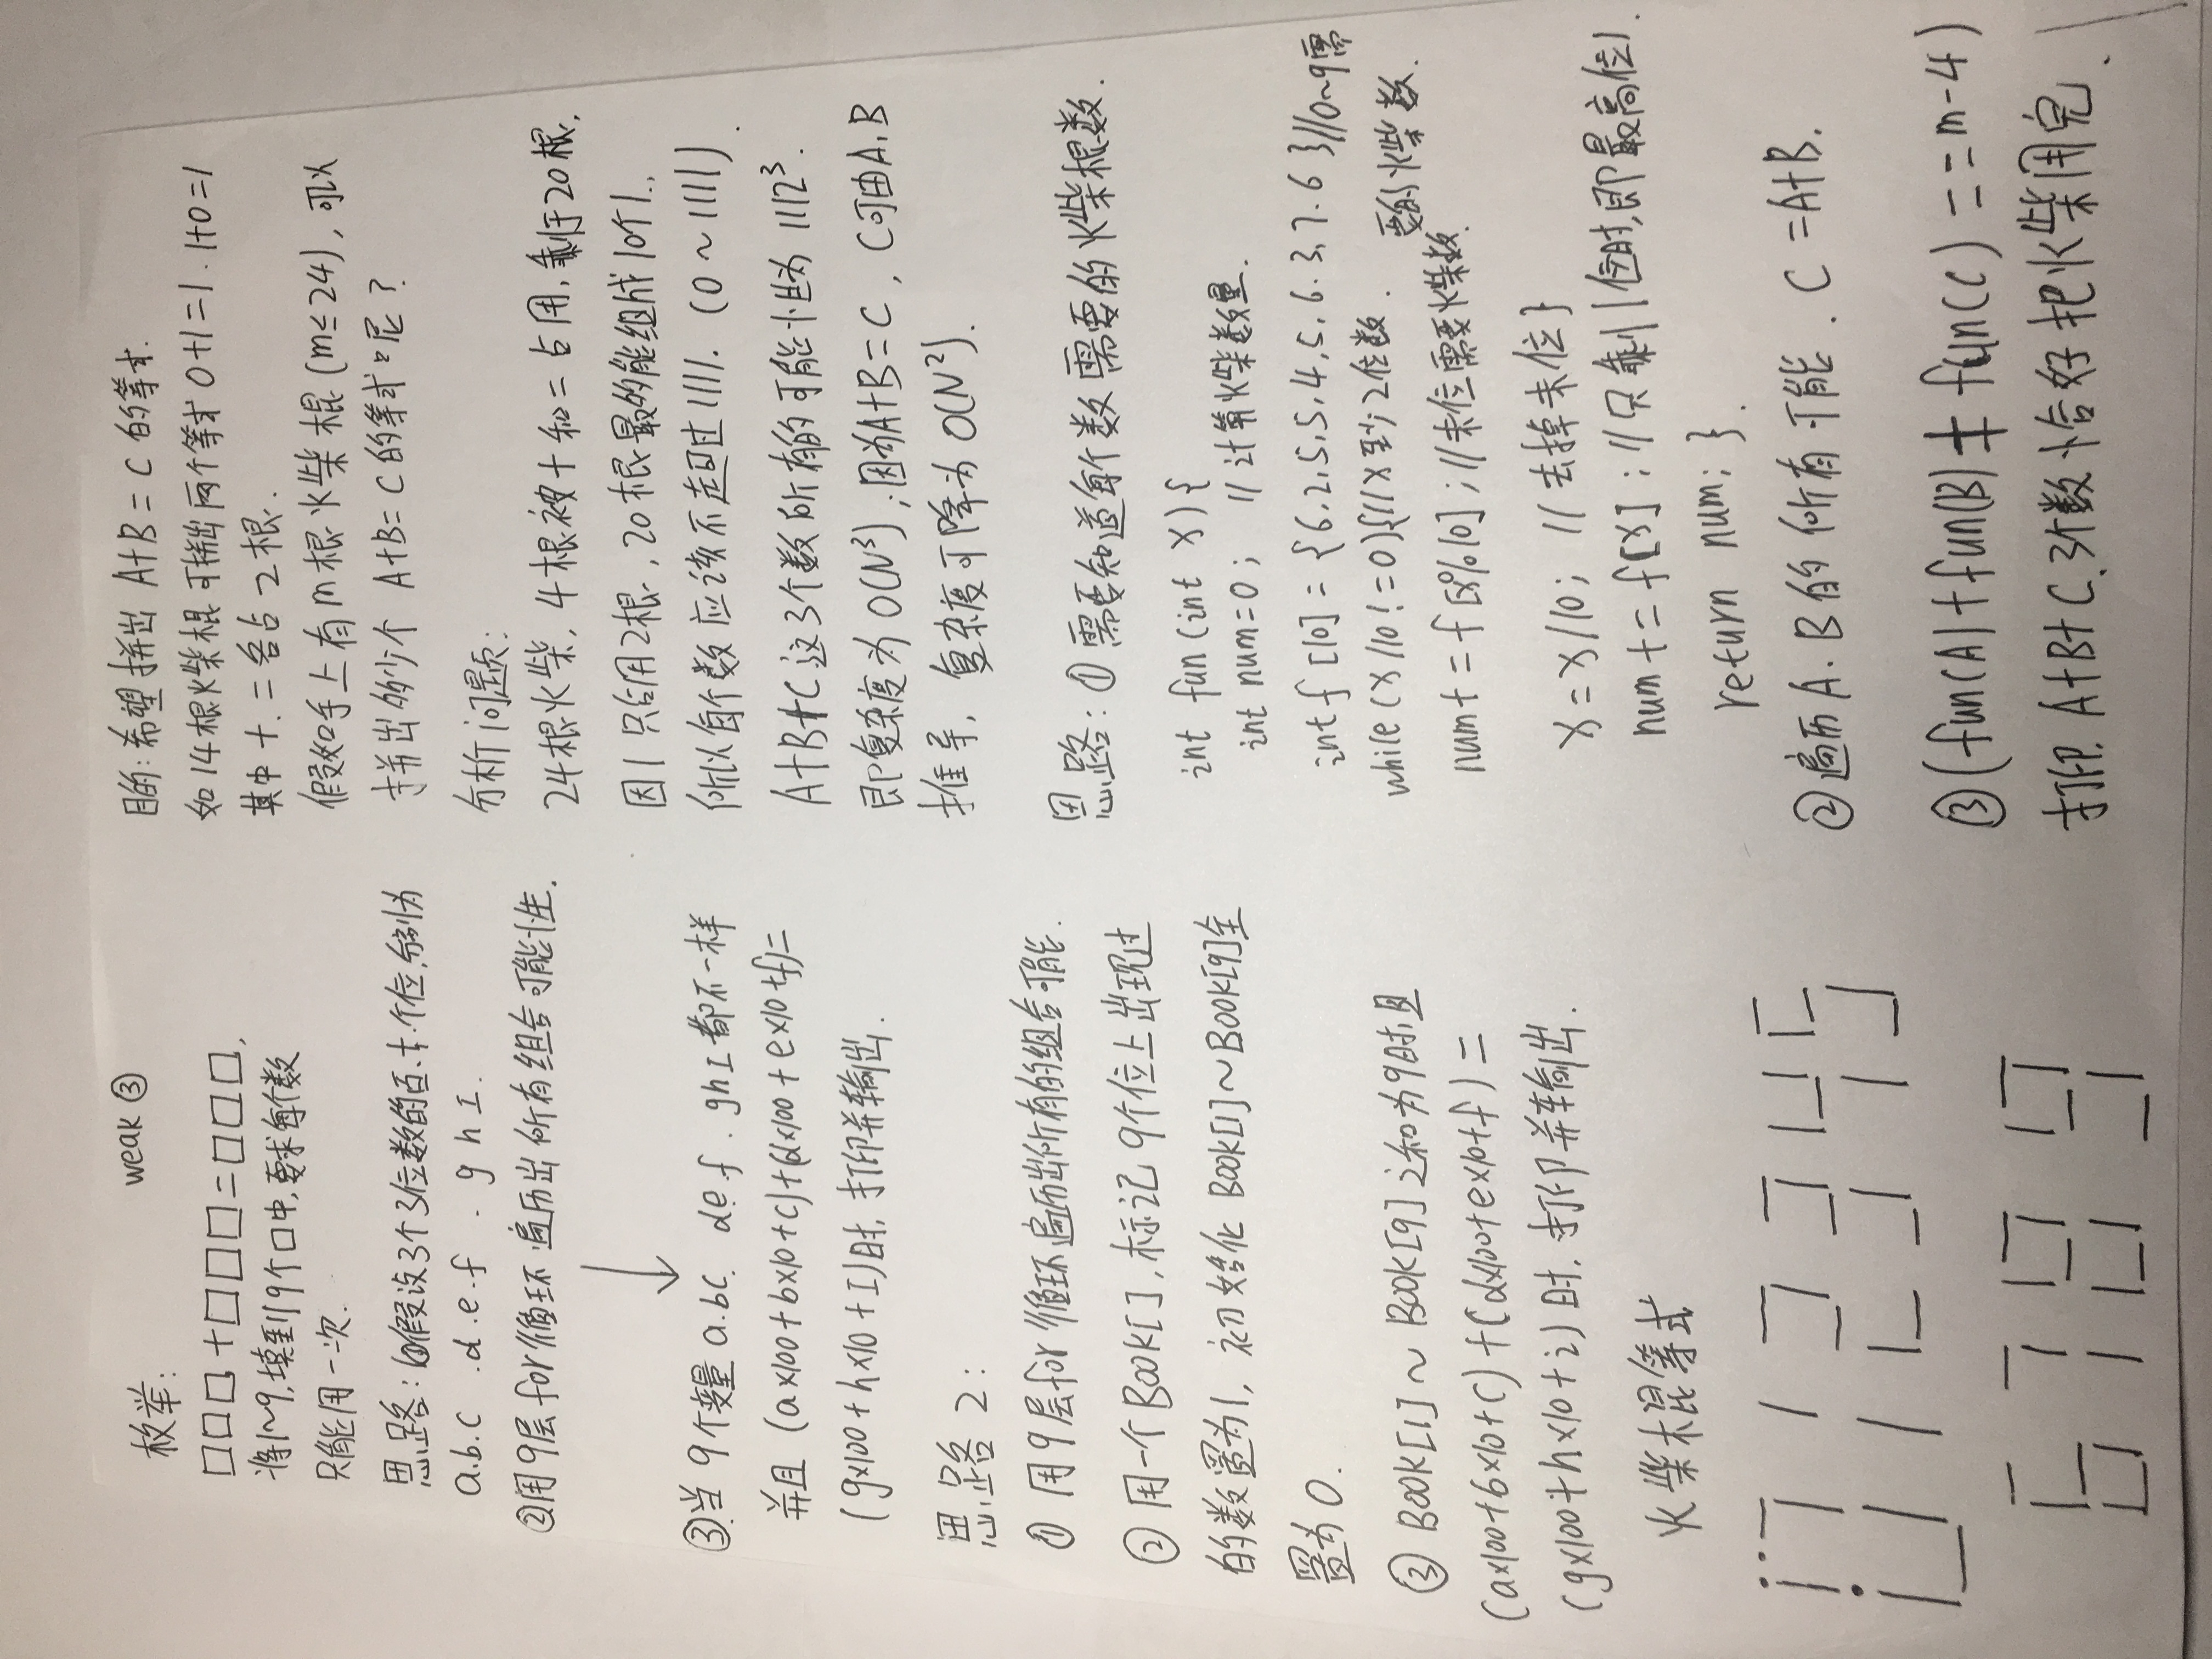 weak ③
枚举:
□□□+□□□=□□□,
将1~9,填到9个口中,要求每个数
只能用一次.
思路: ①假设3个3位数的百.十.个位,分别为
a.b.c .d.e.f . g h I.
②用9层for循环遍历出所有组合可能性.
③当9个变量a.bc. de.f . ghI都不一样
并且 (a×100+b×10+c)+(d×100+e×10+f)=
(g×100+h×10+I)时,打印并输出.
思路2:
① 用9层for循环遍历出所有的组合可能.
② 用一个BOOK[],标记9个位上出现过
的数置为1, 初始化 BOOK[1]~BOOK[9]全
置为0.
③ BOOK[1] ~ BOOK[9]之和为9时,且
(a×100+b×10+c)+(d×100+e×10+f)=
(g×100+h×10+i)时.打印并输出.
火柴棍等式
0 1 2 3 4 5
6 7 8 9
目的:希望拼出 A+B=C的等式.
如14根火柴棍可拼出两个等式 0+1=1. 1+0=1
其中+. =各占2根.
假如手上有m根火柴棍(m≤24),可以
拼出多少个 A+B=C的等式呢?
分析问题:
24根火柴, 4根被+和=占用,剩于20根.
因1只占用2根,20根最多能组成10个1.,
所以每个数应该不超过1111. (0~1111).
A+B+C这3个数所有的可能性为1112³.
即复杂度为O(N³),因为A+B=C, C可由A.B
推导, 复杂度可降为O(N²).
思路: ①需要知道每个数需要的火柴根数.
int fun(int x){
int num=0; //计算火柴数量.
int f [10] = {6.2,5,5.4,5.6.3,7.6}//0~9需
要的火柴数.
while(x/10!=0){//x至少2位数.
num+=f[x%10];//末位需要火柴数.
x=x/10; //去掉末位}
num+=f[x];//只剩1位时,即最高位1.
return num; }.
②遍历A.B的所有可能. C=A+B.
③(fun(A)+fun(B)+fun(C)==m-4)
打印. A+B+C.3个数恰好把火柴用完.